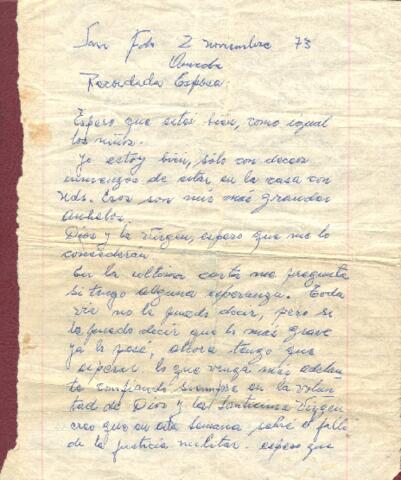 San Fdo 2 noviembre 73
Querida
Recordada Esposa:
Espero que estés bien, como igual
los niños.
Yo estoy bien, sólo con deseos
inmensos de estar en la casa con
Uds. Esos son mis más grandes
anhelos.
Dios y la Virgen, espero que me lo
concederán
En la última carta me pregunta
si tengo alguna esperanza. Toda
vía no le puedo decir, pero si
le puedo decir que lo más grave
ya lo pasé, ahora tengo que
esperar lo que venga más adelan
te confiando siempre en la volun
tad de Dios y la Santísima Virgen
creo que en esta semana sabré el fallo
de la justicia militar. espero que